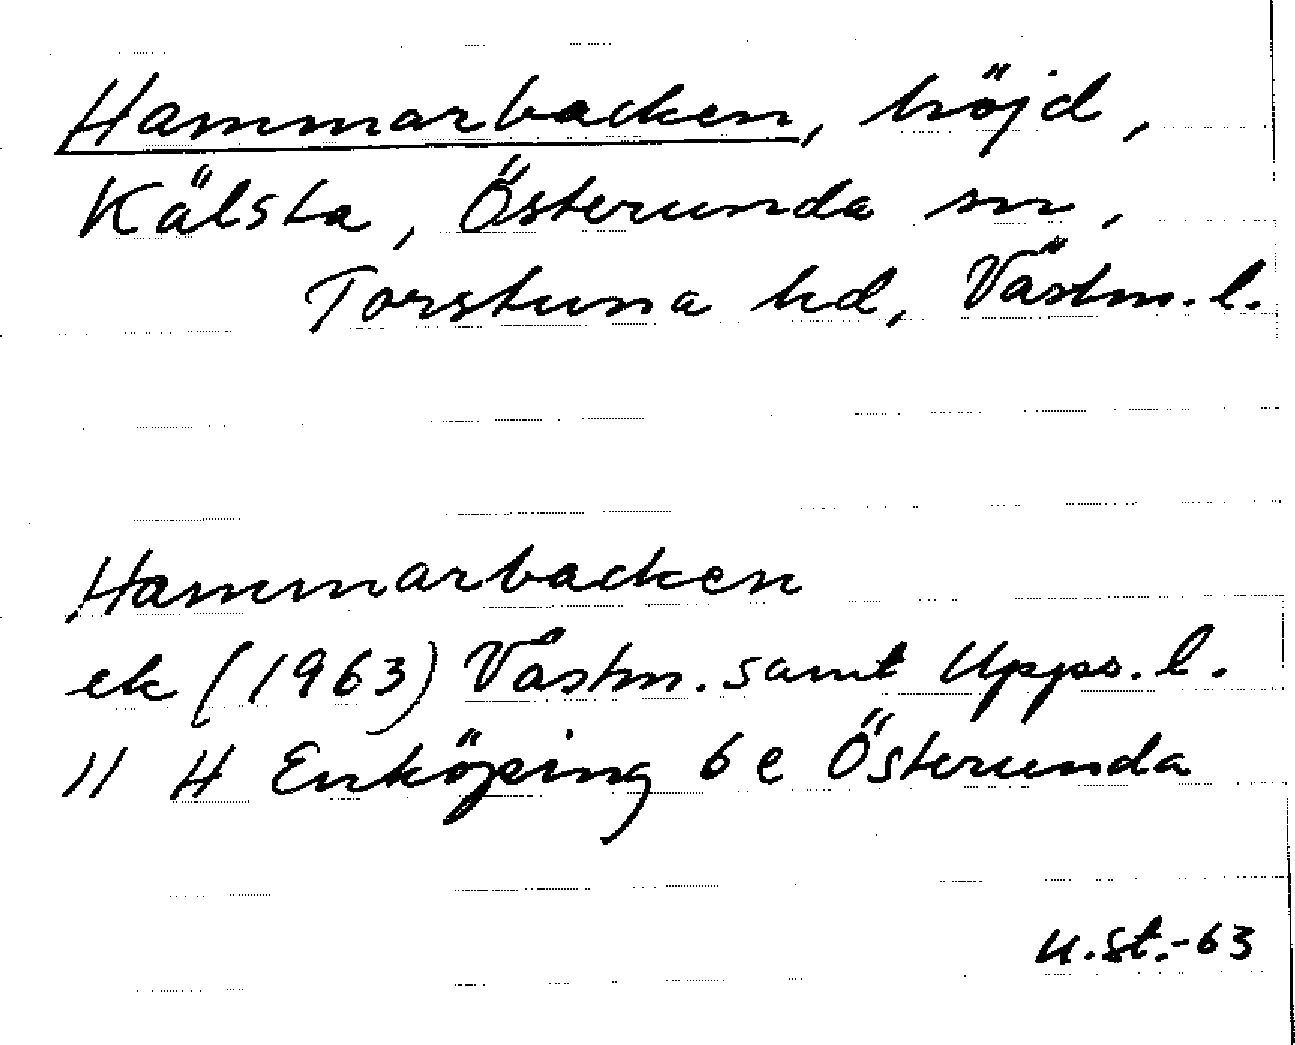 Hammarbacken, höjd,
Kälsta, Österunda sn,
Torstuna hd, Västm. l.
Hammarbacken
ek (1963) Västm. samt Upps. l.
11 H Enköping 6 e Österunda
U.St.-63